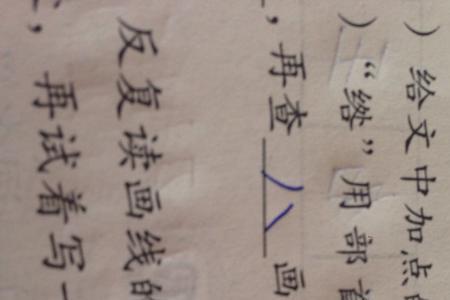 ）给文中加点的
）“绺”用部首
，再查八画
反复读画线的
，再试着写一